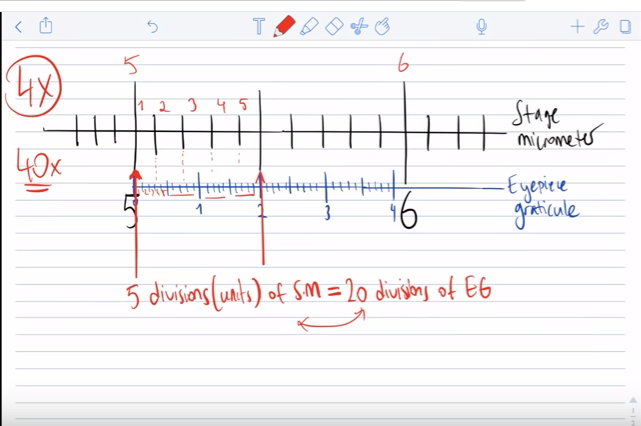 T
5
6
4x
1 2 3 4 5
Stage
micrometer
40x
Eyepiece
graticule
5
1
2
3
4
6
5 divisions (units) of S.M = 20 divisions of EG